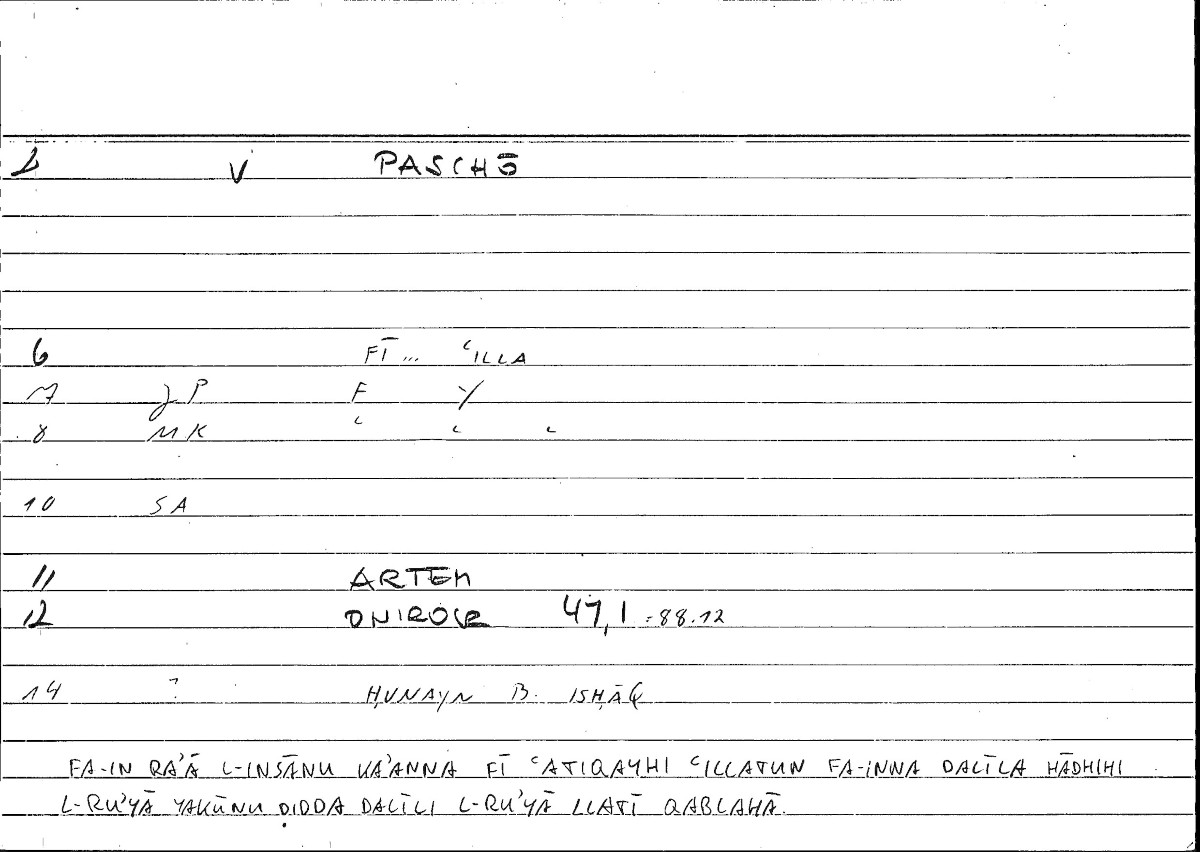 2 V PASCHŌ
6 FĪ ... ʿILLA
7 JP F Y
8 MK ʿ ʿ ʿ
10 SA
11 ARTEM
12 ONIROCR 47,1 = 88.12
14 ? ḤUNAYN B. ISḤĀQ
FA-IN RAʾĀ L-INSĀNU KAʾANNA FĪ ʿATIQAYHI ʿILLATUN FA-INNA DALĪLA HĀDHIHI
L-RUʾYĀ YAKŪNU ḌIDDA DALĪLI L-RUʾYĀ LLATĪ QABLAHĀ.